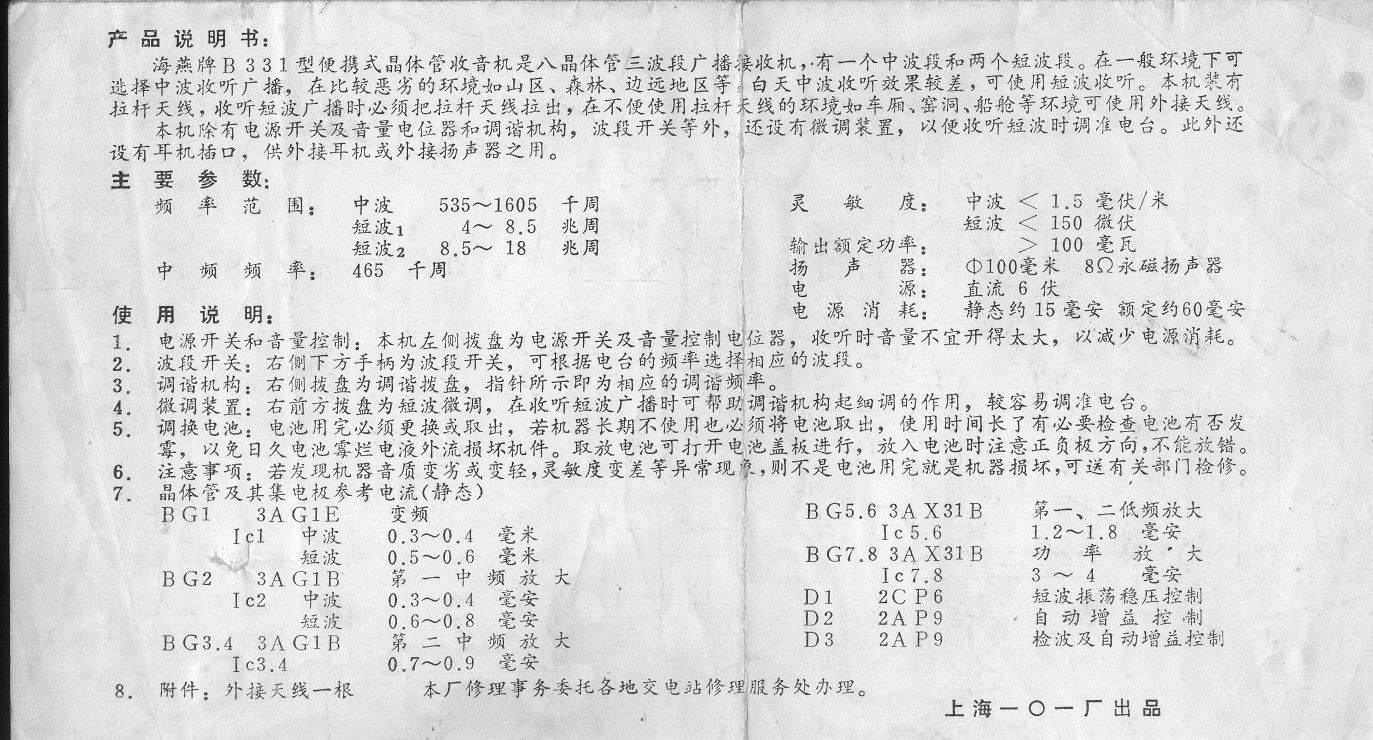 产品说明书：
海燕牌B331型便携式晶体管收音机是八晶体管三波段广播接收机，有一个中波段和两个短波段。在一般环境下可
选择中波收听广播，在比较恶劣的环境如山区、森林、边远地区等，白天中波收听效果较差，可使用短波收听。本机装有
拉杆天线，收听短波广播时必须把拉杆天线拉出，在不便使用拉杆天线的环境如车厢、窑洞、船舱等环境可使用外接天线。
本机除有电源开关及音量电位器和调谐机构，波段开关等外，还设有微调装置，以便收听短波时调准电台。此外还
设有耳机插口，供外接耳机或外接扬声器之用。
主要参数：
频率范围： 中波 535～1605 千周
短波1 4～8.5 兆周
短波2 8.5～18 兆周
中频频率： 465 千周
灵敏度： 中波 < 1.5 毫伏/米
短波 < 150 微伏
输出额定功率： > 100 毫瓦
扬声器： Φ100毫米 8Ω永磁扬声器
电源： 直流 6 伏
电源消耗： 静态约15毫安 额定约60毫安
使用说明：
1. 电源开关和音量控制：本机左侧拨盘为电源开关及音量控制电位器，收听时音量不宜开得太大，以减少电源消耗。
2. 波段开关：右侧下方手柄为波段开关，可根据电台的频率选择相应的波段。
3. 调谐机构：右侧拨盘为调谐拨盘，指针所示即为相应的调谐频率。
4. 微调装置：右前方拨盘为短波微调，在收听短波广播时可帮助调谐机构起细调的作用，较容易调准电台。
5. 调换电池：电池用完必须更换或取出，若机器长期不使用也必须将电池取出，使用时间长了有必要检查电池有否发
霉，以免日久电池霉烂电液外流损坏机件。取放电池可打开电池盖板进行，放入电池时注意正负极方向，不能放错。
6. 注意事项：若发现机器音质变劣或变轻，灵敏度变差等异常现象，则不是电池用完就是机器损坏，可送有关部门检修。
7. 晶体管及其集电极参考电流(静态)
BG1 3AG1E 变频
Ic1 中波 0.3～0.4 毫米
短波 0.5～0.6 毫米
BG2 3AG1B 第一中频放大
Ic2 中波 0.3～0.4 毫安
短波 0.6～0.8 毫安
BG3.4 3AG1B 第二中频放大
Ic3.4 0.7～0.9 毫安
BG5.6 3AX31B 第一、二低频放大
Ic5.6 1.2～1.8 毫安
BG7.8 3AX31B 功率放大
Ic7.8 3～4 毫安
D1 2CP6 短波振荡稳压控制
D2 2AP9 自动增益控制
D3 2AP9 检波及自动增益控制
8. 附件：外接天线一根 本厂修理事务委托各地交电站修理服务处办理。
上海一〇一厂出品